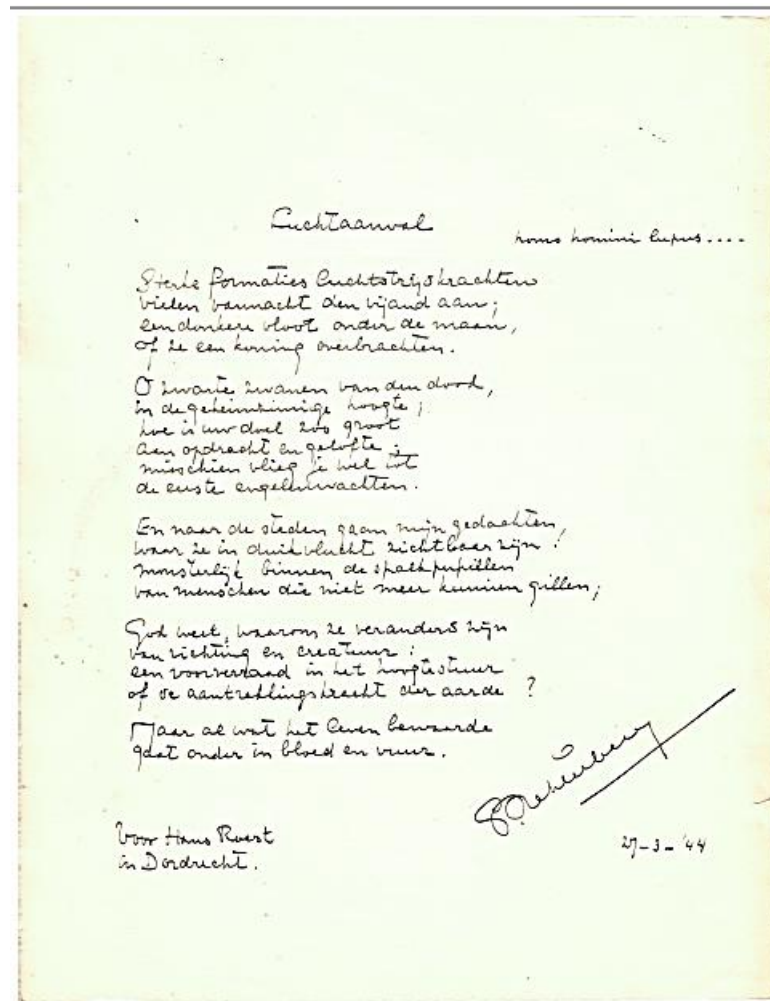 Luchtaanval
homo homini lupus....
Sterke formaties luchtstrijdkrachten
vielen vannacht den vijand aan;
een donkere vloot onder de maan,
of ze een koning overbrachten.
O zwarte zwanen van den dood,
in de geheimzinnige hoogte;
hoe is uw doel zoo groot
aan opdracht en gelofte;
misschien vlieg je wel tot
de eerste engelenwachten.
En naar de steden gaan mijn gedachten,
waar ze in duikvlucht zichtbaar zijn:
monsterlijk binnen de spalkpupillen
van menschen die niet meer kunnen gillen;
God weet, waarom ze veranderd zijn
van richting en creatuur:
een voorverraad in het hoogtestuur
of de aantrekkingskracht der aarde?
Maar al wat het leven bewaarde
gaat onder in bloed en vuur.
Voor Hans Roest
in Dordrecht.
27-3-'44